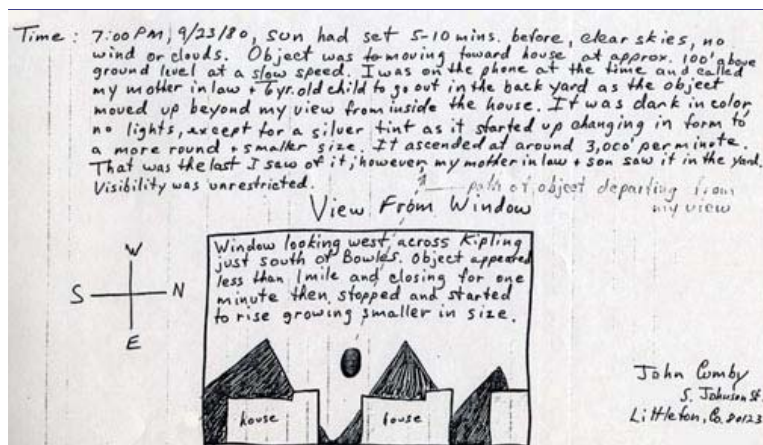 Time: 7:00 PM, 9/23/80, sun had set 5-10 mins. before, clear skies, no
wind or clouds. Object was moving toward house at approx. 100' above
ground level at a slow speed. I was on the phone at the time and called
my mother in law + 6 yr. old child to go out in the back yard as the object
moved up beyond my view from inside the house. It was dark in color,
no lights, except for a silver tint as it started up changing in form to
a more round + smaller size. It ascended at around 3,000' per minute.
That was the last I saw of it; however, my mother in law + son saw it in the yard.
Visibility was unrestricted.
path of object departing from
my view
View From Window
Window looking west across Kipling
just south of Bowles. Object appeared
less than 1 mile and closing for one
minute then stopped and started
to rise growing smaller in size.
W
S N
E
house house
John Cumby
S. Johnson St.
Littleton, Co. 80123